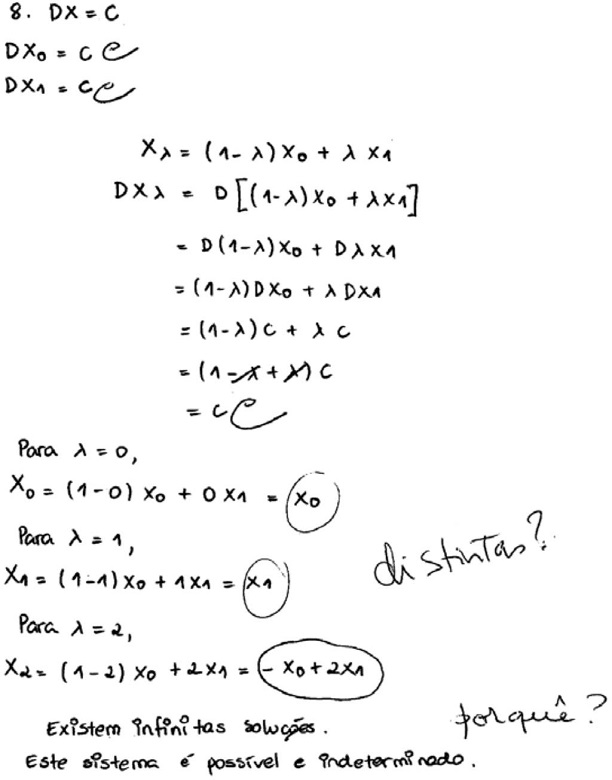 8. DX = C
DX₀ = C e
DX₁ = C e
Xλ = (1-λ)X₀ + λX₁
DXλ = D[(1-λ)X₀ + λX₁]
= D(1-λ)X₀ + DλX₁
= (1-λ)DX₀ + λDX₁
= (1-λ)C + λC
= (1-λ+λ)C
= C e
Para λ = 0,
X₀ = (1-0)X₀ + 0X₁ = X₀
Para λ = 1,
distintas?
X₁ = (1-1)X₀ + 1X₁ = X₁
Para λ = 2,
X₂ = (1-2)X₀ + 2X₁ = -X₀ + 2X₁
porquê?
Existem infinitas soluções.
Este sistema é possível e indeterminado.